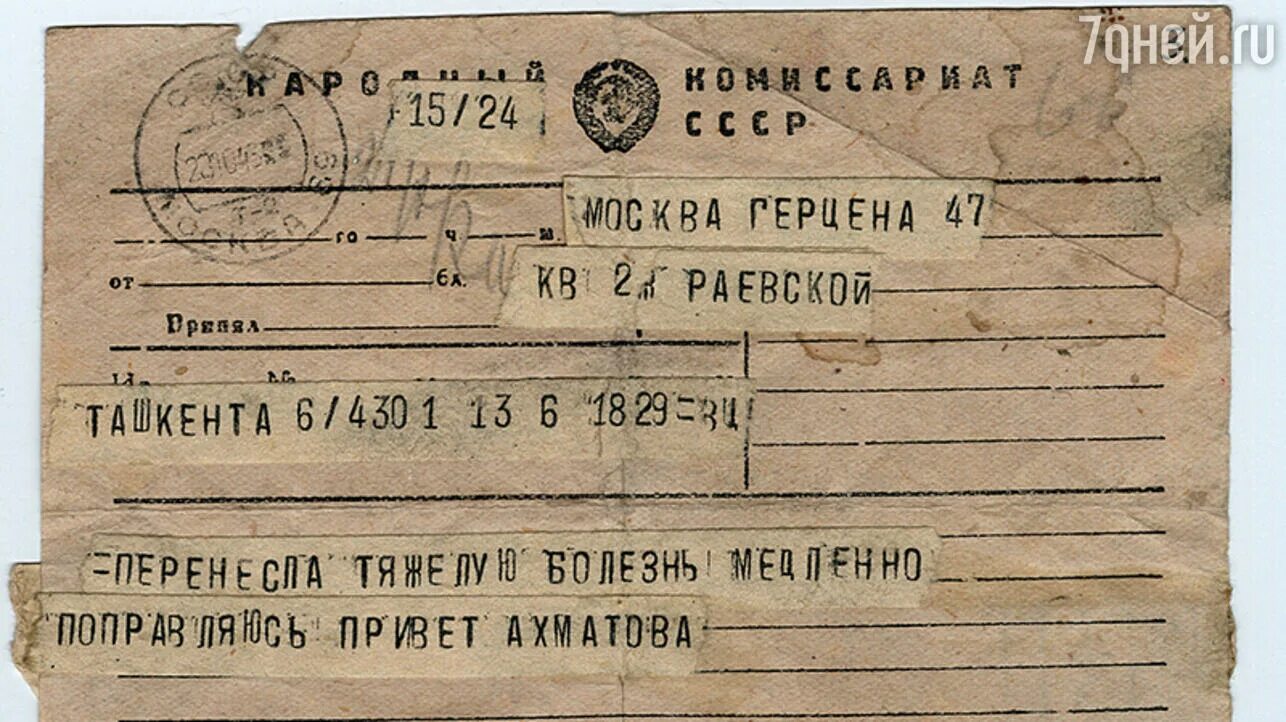 7дней.ru
НАРОДНЫЙ КОМИССАРИАТ
15/24 СССР
МОСКВА
го ч. м.
МОСКВА ГЕРЦЕНА 47
от бл.
КВ 2 РАЕВСКОЙ
Принял
№
ТАШКЕНТА 6/4301 13 6 1829=
=ПЕРЕНЕСЛА ТЯЖЕЛУЮ БОЛЕЗНЬ МЕДЛЕННО
ПОПРАВЛЯЮСЬ ПРИВЕТ АХМАТОВА